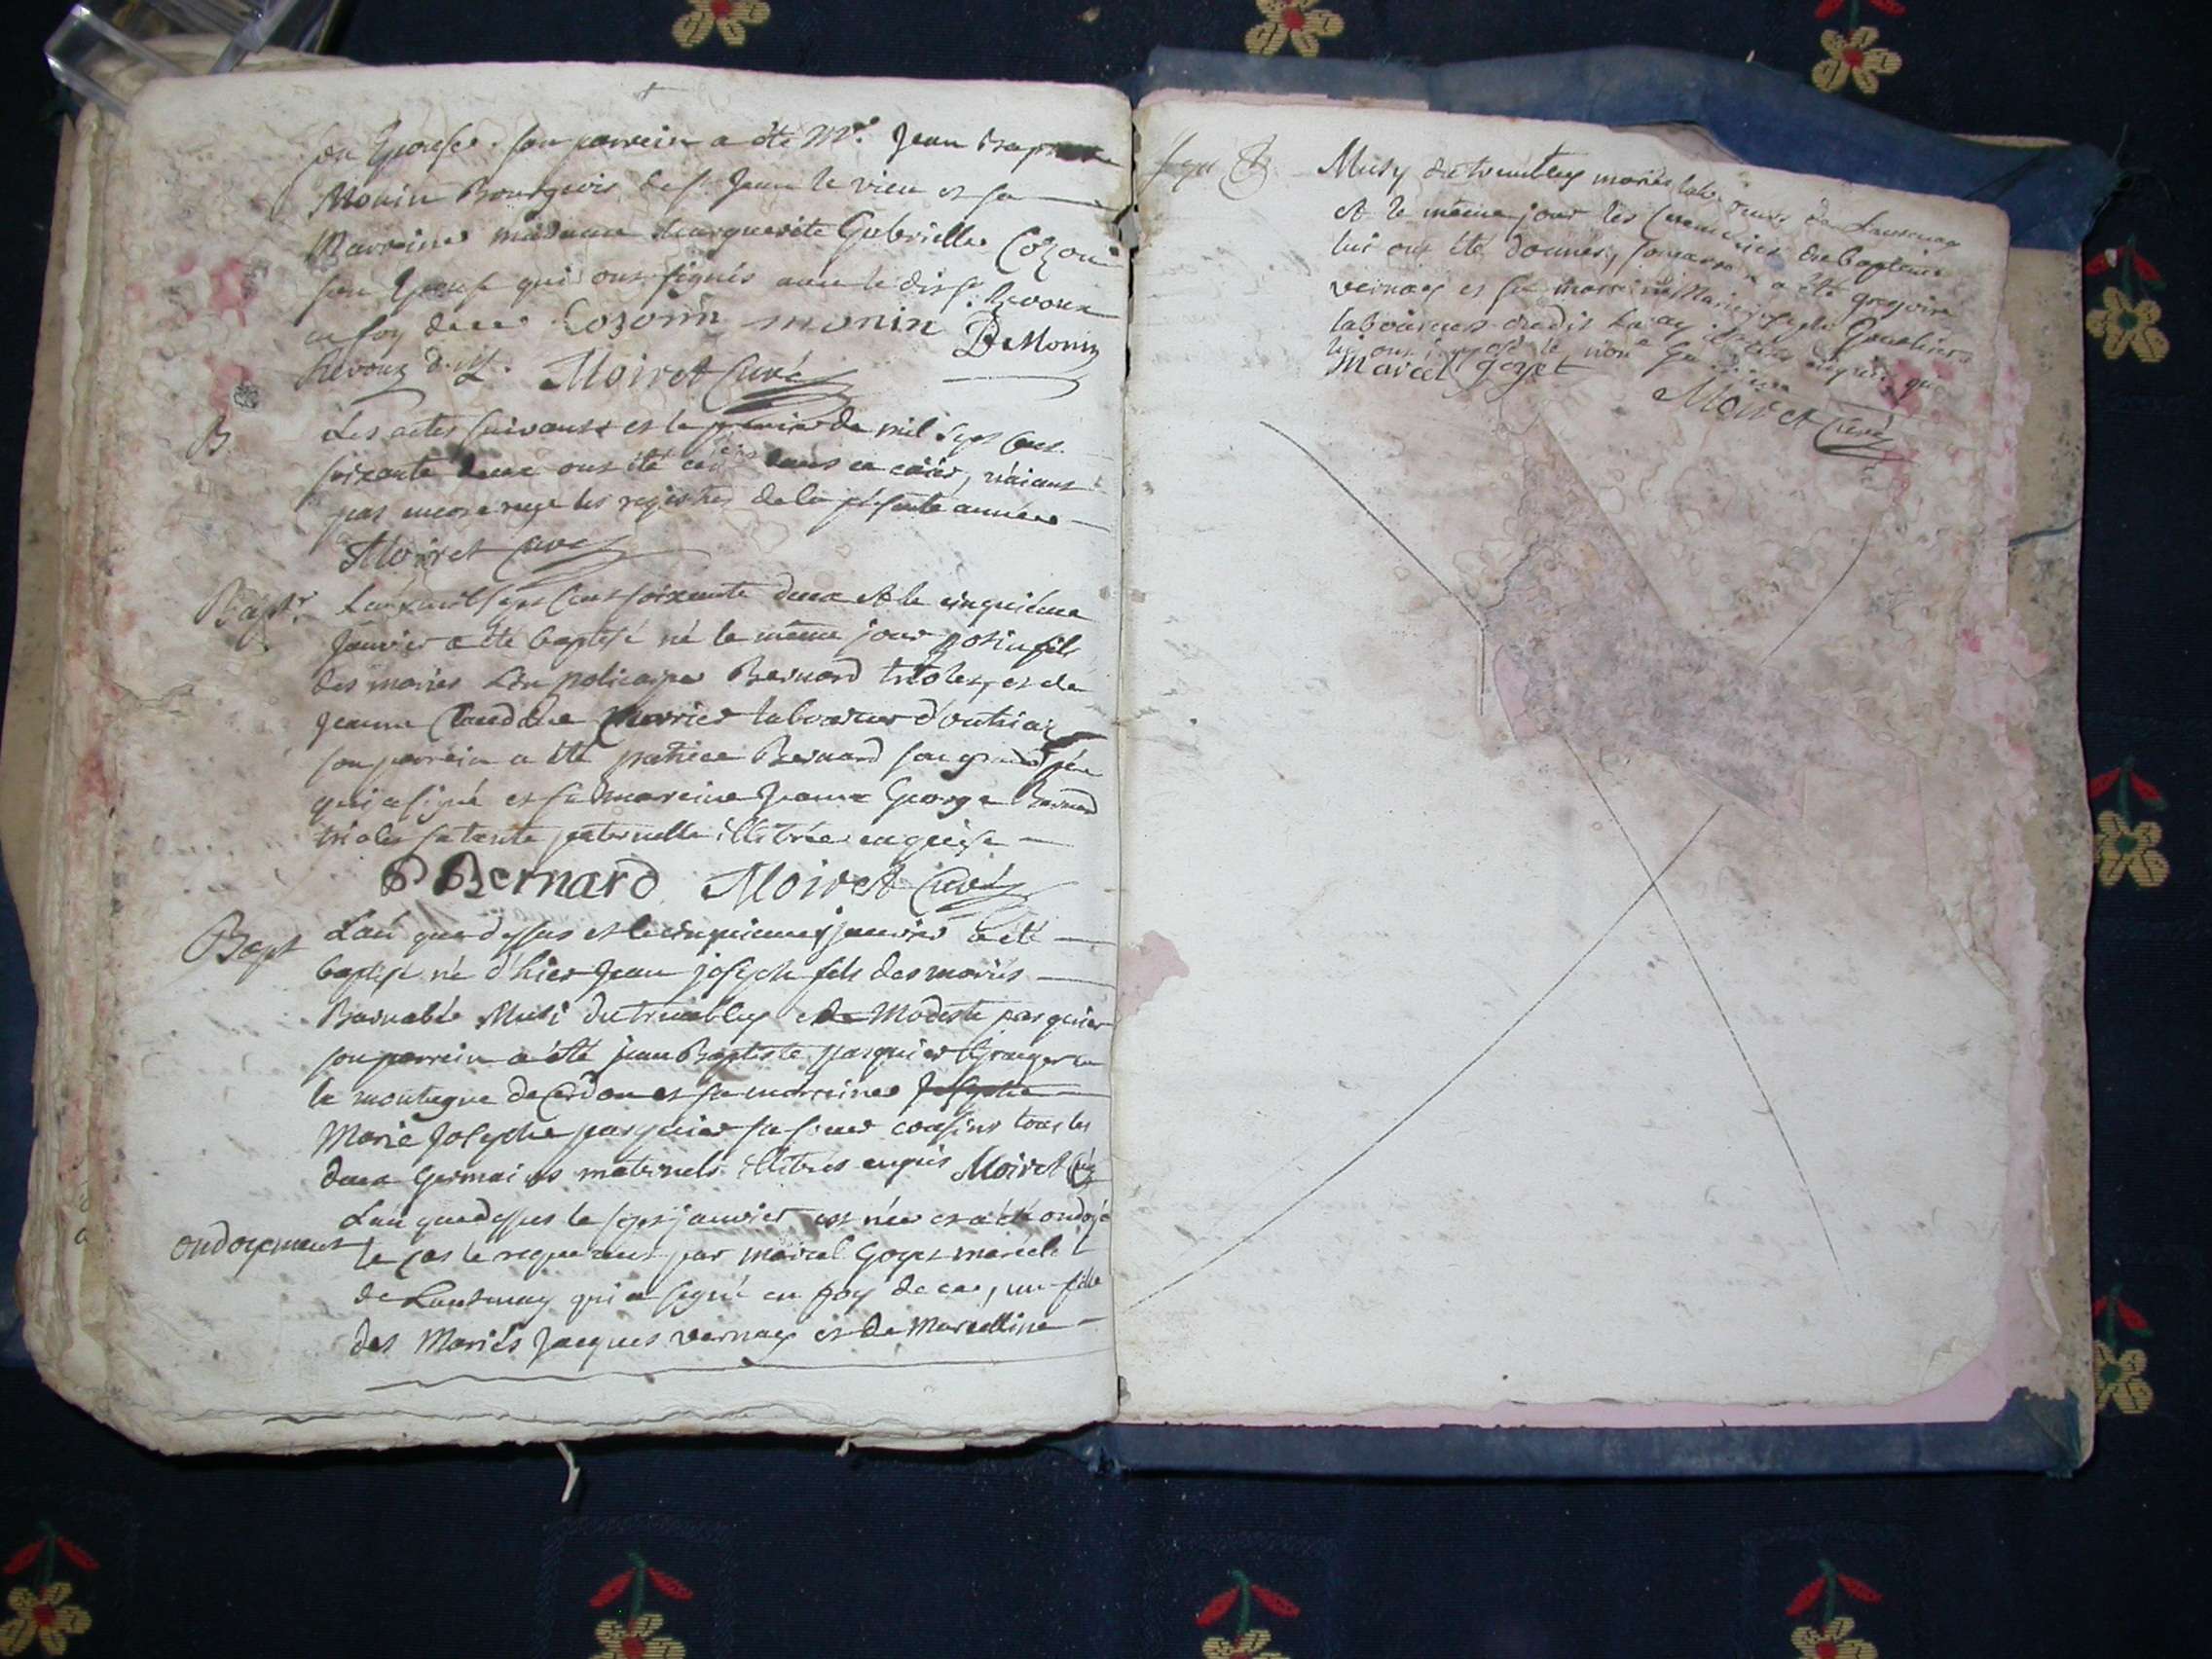 son Epouse. son parrein a été Mr. Jean Baptiste
Monin Bourgeois de st Jean le vieu et sa
Marreine madame Marguerite Gabrielle Cozon
son Epouse qui ont signés avec le dit sr. Revoux
en foy de ce Cozonn monin DeMonin
Revoux Moiret Curé
B. Les actes suivants et le premier de mil sept cent
soixante deux ont été dans ce caïer, n'aiant
pas encore reçu les registres de la présente année
Moiret Curé
Bapt. L'an mil sept cent soixante deux et le cinquième
janvier a été baptisé né le même jour fils
des mariés policarpe Bernard triolet, et de
Jeanne Claudine laboureur d'outriaz
son parrein a été patrice Bernard son grand père
qui a signé et sa mareine Jeanne George Bernard
triolet sa tante paternelle illitrée enquise
P Bernard Moiret Curé
Bapt L'an que dessus et le cinquieme janvier a été
baptisé né d'hier Jean joseph fils des mariés
Barnabée Musi du trembley et de Modeste pasquier
son parrein a été jean Baptiste pasquier Granger en
la montagne de Cerdon et sa marreine Josephe
Marie Josephe pasquier sa soeur cousins tous les
deux germains maternels illitrés enquis Moiret Cé
ondoyement L'an que dessus le sept janvier est née et a été ondoyé
le cas le requerant par marcel Goyet marechl
de Lantenay qui a signé en foy de ce, une fille
des Mariés Jacques vernay et de Marcelline
Musy du trembley mariés laboureurs de Lantenay
et le même jour les Ceremonies du Baptême
lui ont été données, son parrein a été gregoire
vernay et sa marreine Marie
laboureurs dudit enquis qui
lui ont imposé le nom
Marcel goyet
Moiret Curé